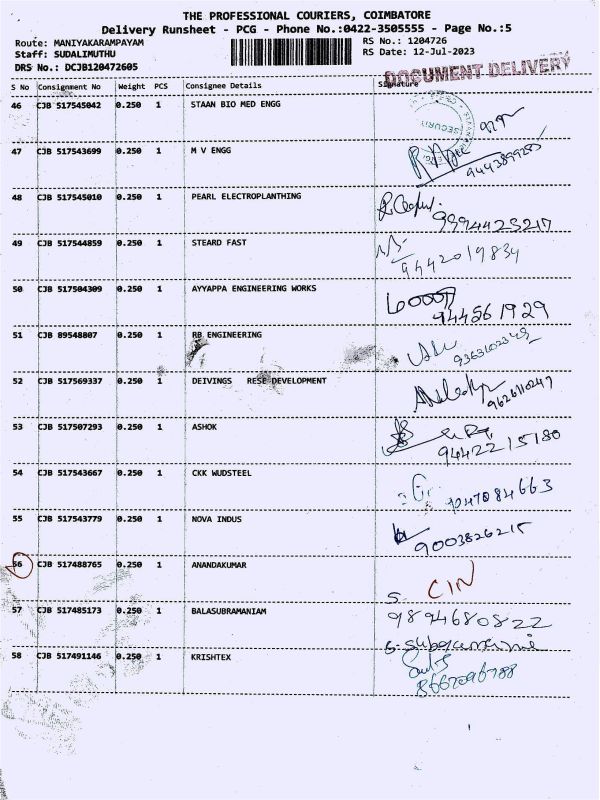 THE PROFESSIONAL COURIERS, COIMBATORE
Delivery Runsheet - PCG - Phone No.:0422-3505555 - Page No.:5
Route: MANIYAKARAMPAYAM RS No.: 1204726
Staff: SUDALIMUTHU RS Date: 12-Jul-2023
DRS No.: DCJB120472605
DOCUMENT DELIVERY
S No Consignment No Weight PCS Consignee Details Signature
46 CJB 517545042 0.250 1 STAAN BIO MED ENGG
SECURITY
47 CJB 517543699 0.250 1 M V ENGG
9443899285
48 CJB 517545010 0.250 1 PEARL ELECTROPLANTHING
9994423217
49 CJB 517544859 0.250 1 STEARD FAST
9442019834
50 CJB 517504309 0.250 1 AYYAPPA ENGINEERING WORKS
944561929
51 CJB 89548807 0.250 1 RB ENGINEERING
52 CJB 517569337 0.250 1 DEIVINGS RESE DEVELOPMENT
9626110247
53 CJB 517507293 0.250 1 ASHOK
9442215180
54 CJB 517543667 0.250 1 CKK WUDSTEEL
9047084663
55 CJB 517543779 0.250 1 NOVA INDUS
9003826215
56 CJB 517488765 0.250 1 ANANDAKUMAR
CIN
57 CJB 517485173 0.250 1 BALASUBRAMANIAM
S
9894680822
58 CJB 517491146 0.250 1 KRISHTEX
8667096788